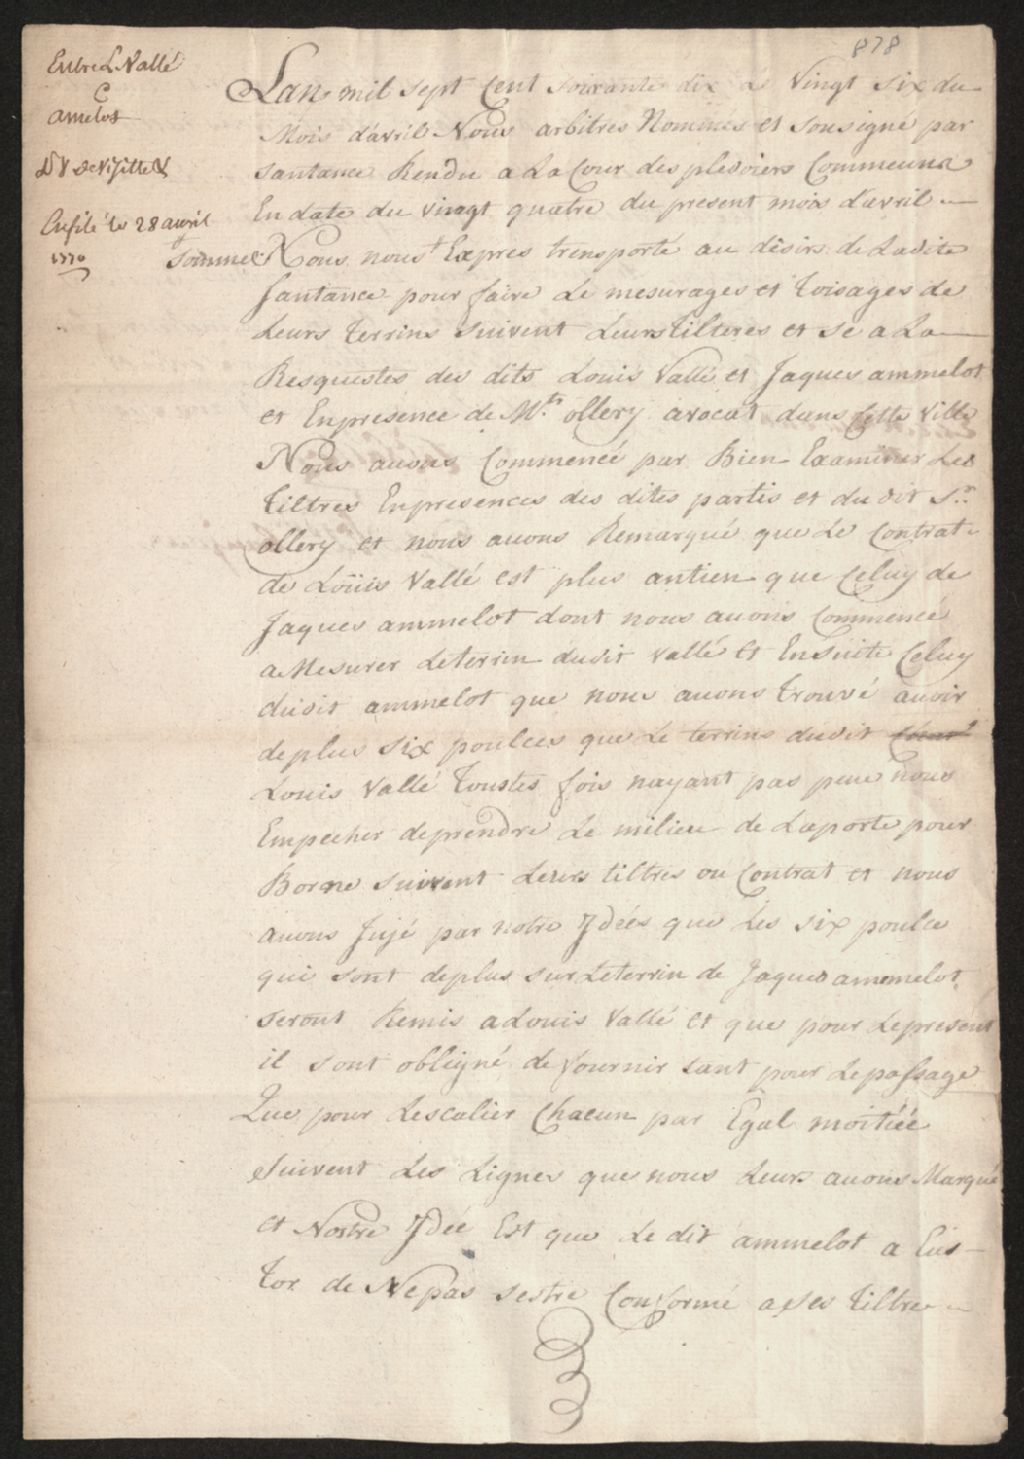 878
Entre L Vallé
C
amelot
D V de Visitte &
Enfilé le 28 avril
1770
Lan mil sept Cent soixante dix a Vingt six du
Mois davril Nous arbitres Nommés et sousigné par
santance Rendu a La Cour des pledoiers Commeuna
En date du vingt quatre du present mois davril
Sommes Nous nous Expres trensporté au désirs de Ladite
santance pour faire Le mesurages et toisages de
Leurs terrins suivent Leurs tilteres et se a La
Resquestes des dits Louis Vallé et Jaques ammelot
et Enpresence de Mts ollery avocat dans Cette Ville
Nous auons Commencé par Bien Examiner Les
tiltres Enpresences des dites partis et du dit Sr
ollery et nous auons Remarqué que Le Contrat
de Loüis Vallé est plus antien que Celuy de
Jaques ammelot dont nous auons Commencé
a Mesurer Leterrin dudit Vallé Et Ensuite Celuy
dudit ammelot que nous auons trouvé auoir
deplus six poulces que Le terrins dudit
Louis Vallé toustes fois nayant pas peue nous
Empecher deprendre Le milieu de Laporte pour
Borne suivent Leurs tiltres ou Contrat et nous
auons Jujé par notre Jdées que Les six poulce
qui sont deplus sur Leterrin de Jaques ammelot
seront Remis a Louis Vallé et que pour Lepresent
il sont obligné de fournir tant pour Lepassage
Que pour Lescalier Chacun par Egal moitiée
suivent Les Lignes que nous Leurs auons Marqué
et Nostre Jdée Est que Le dit ammelot a Eus
tor de Nepas sestre Conformé a ses tiltre